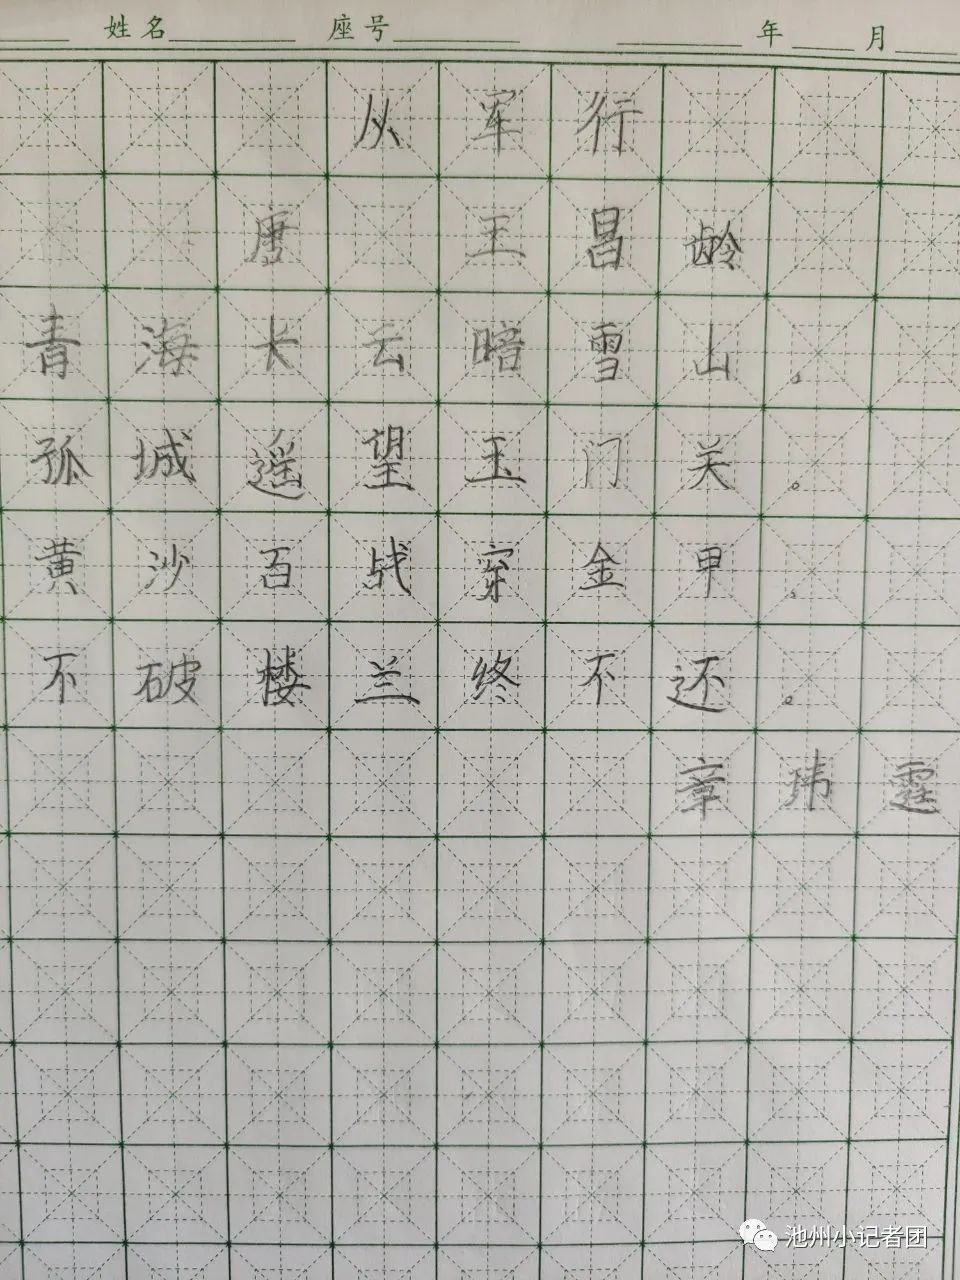 姓名 座号 年 月
从军行
唐 王昌龄
青海长云暗雪山,
孤城遥望玉门关。
黄沙百战穿金甲,
不破楼兰终不还。
章玮霆
池州小记者团